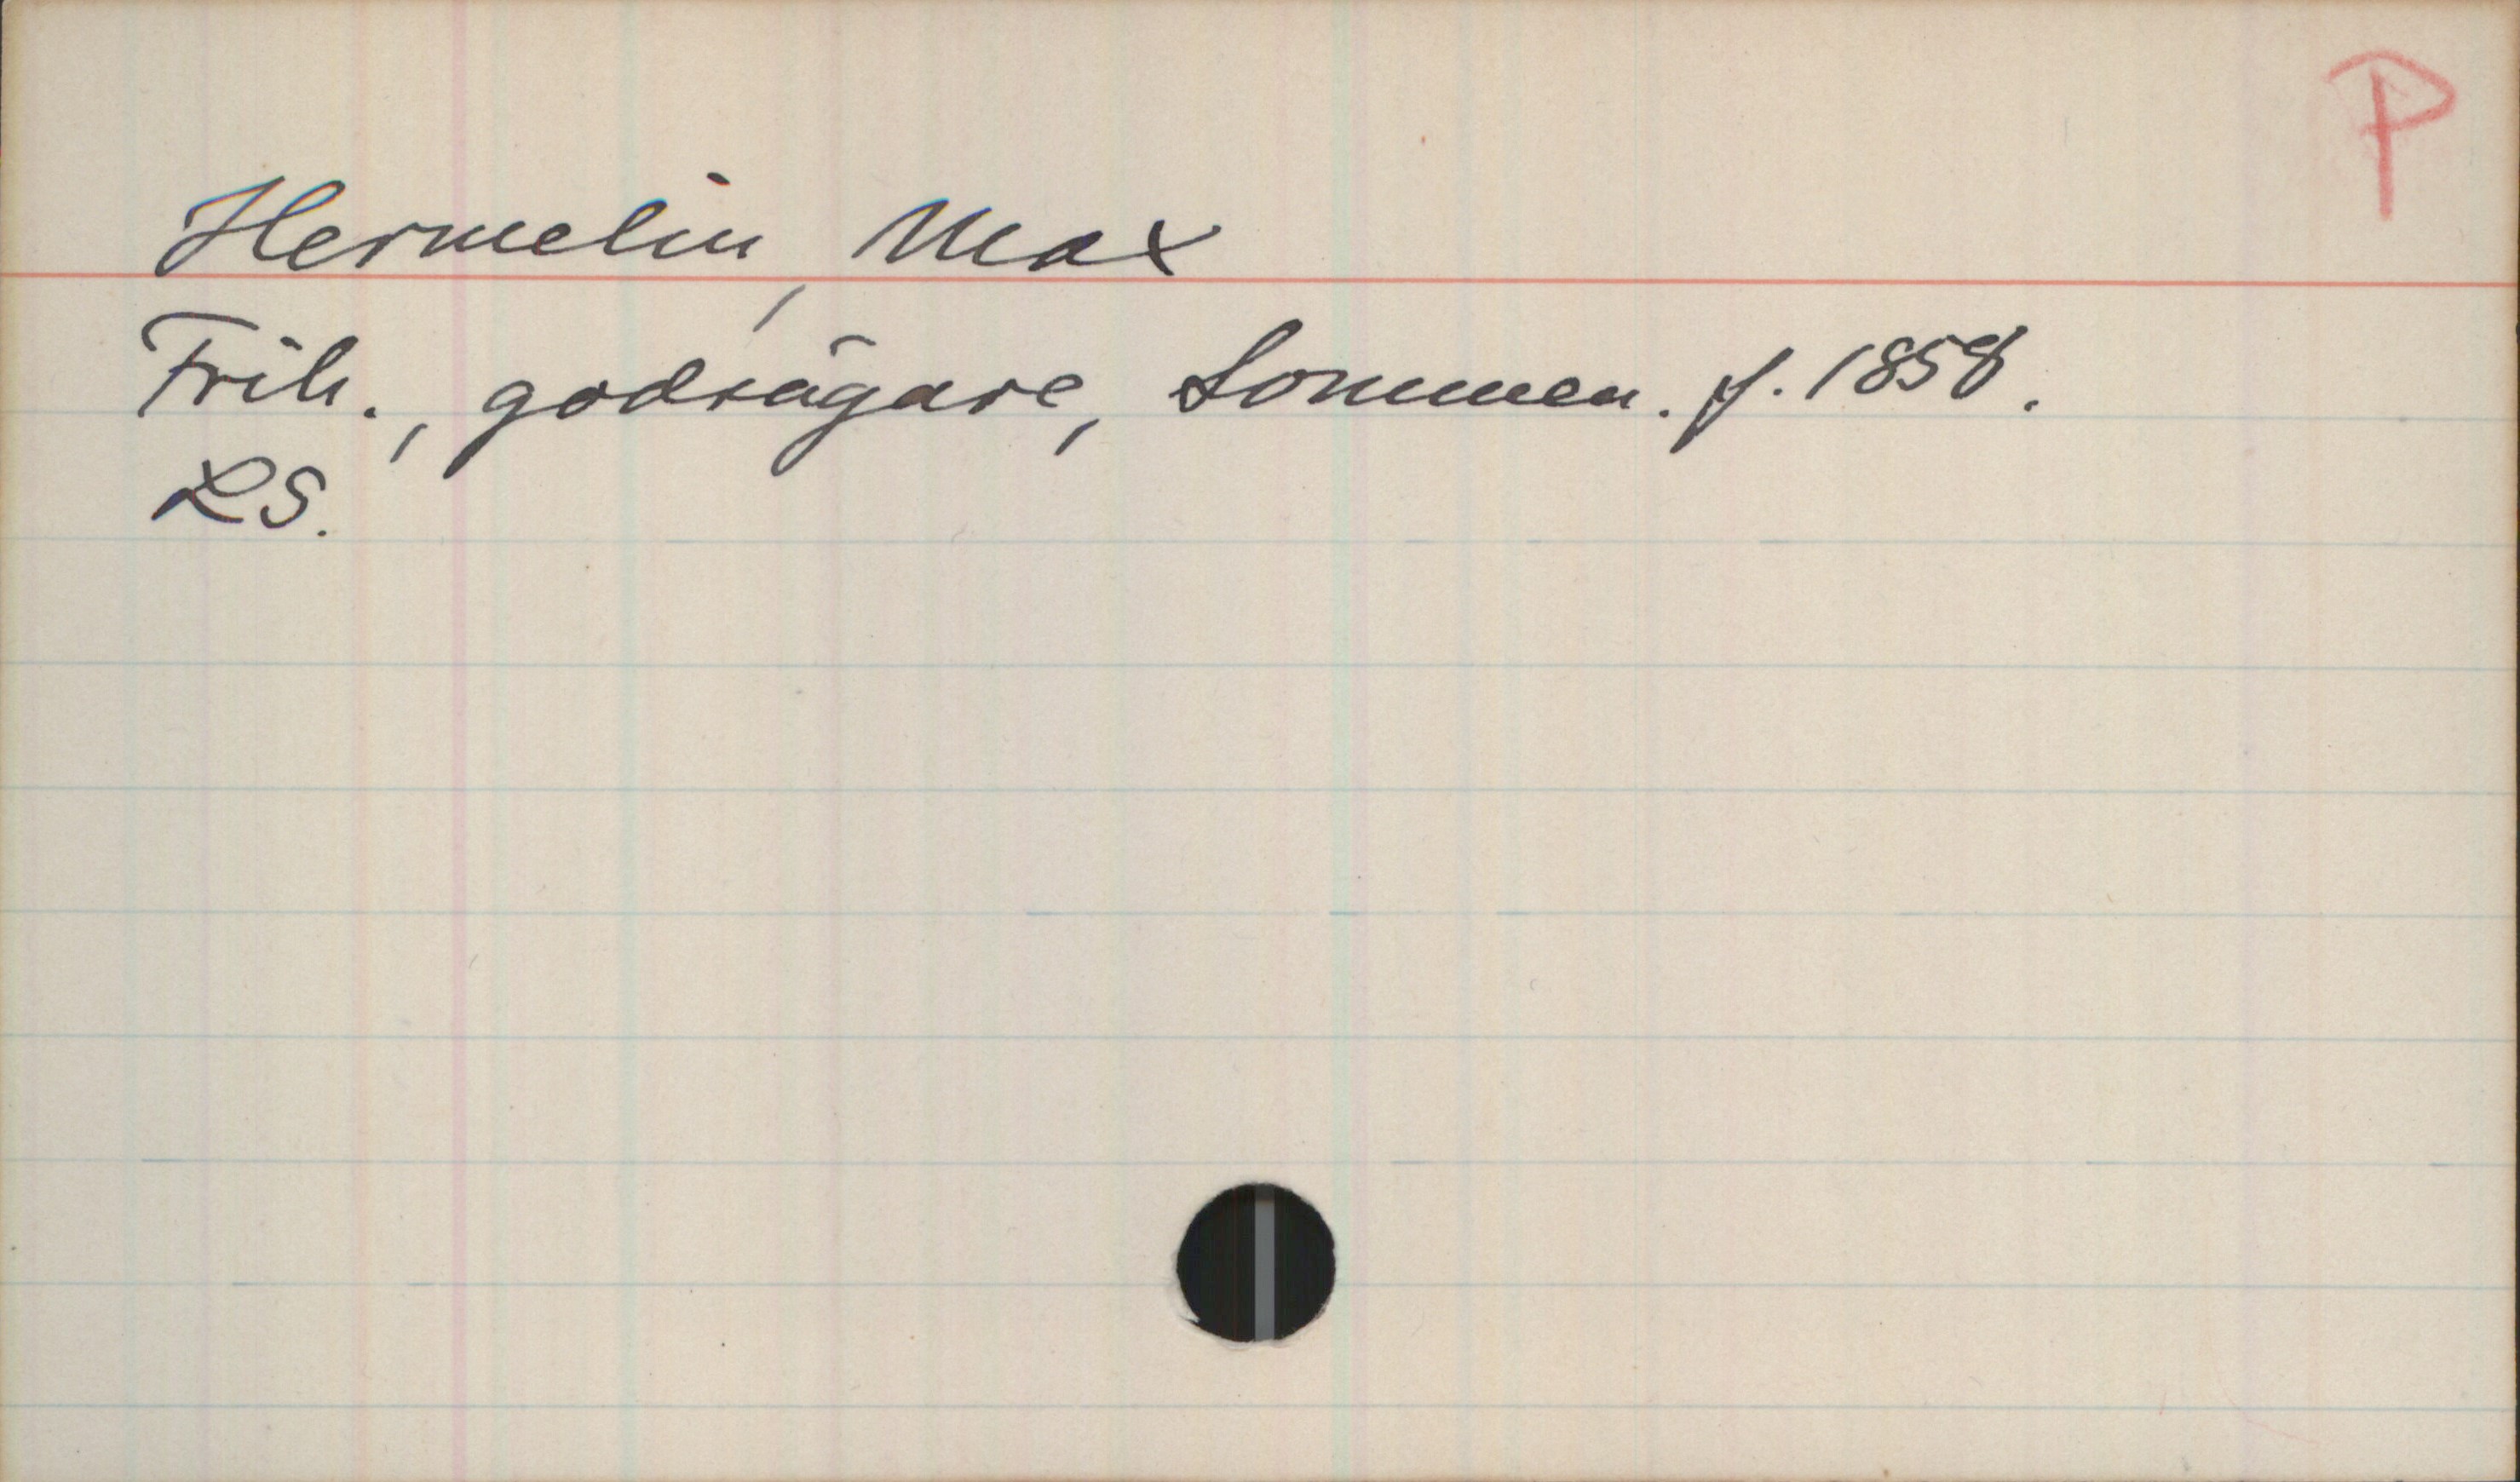 P
Hermelin, Max
Frih., godsägare, Sommen. f. 1858.
RS.